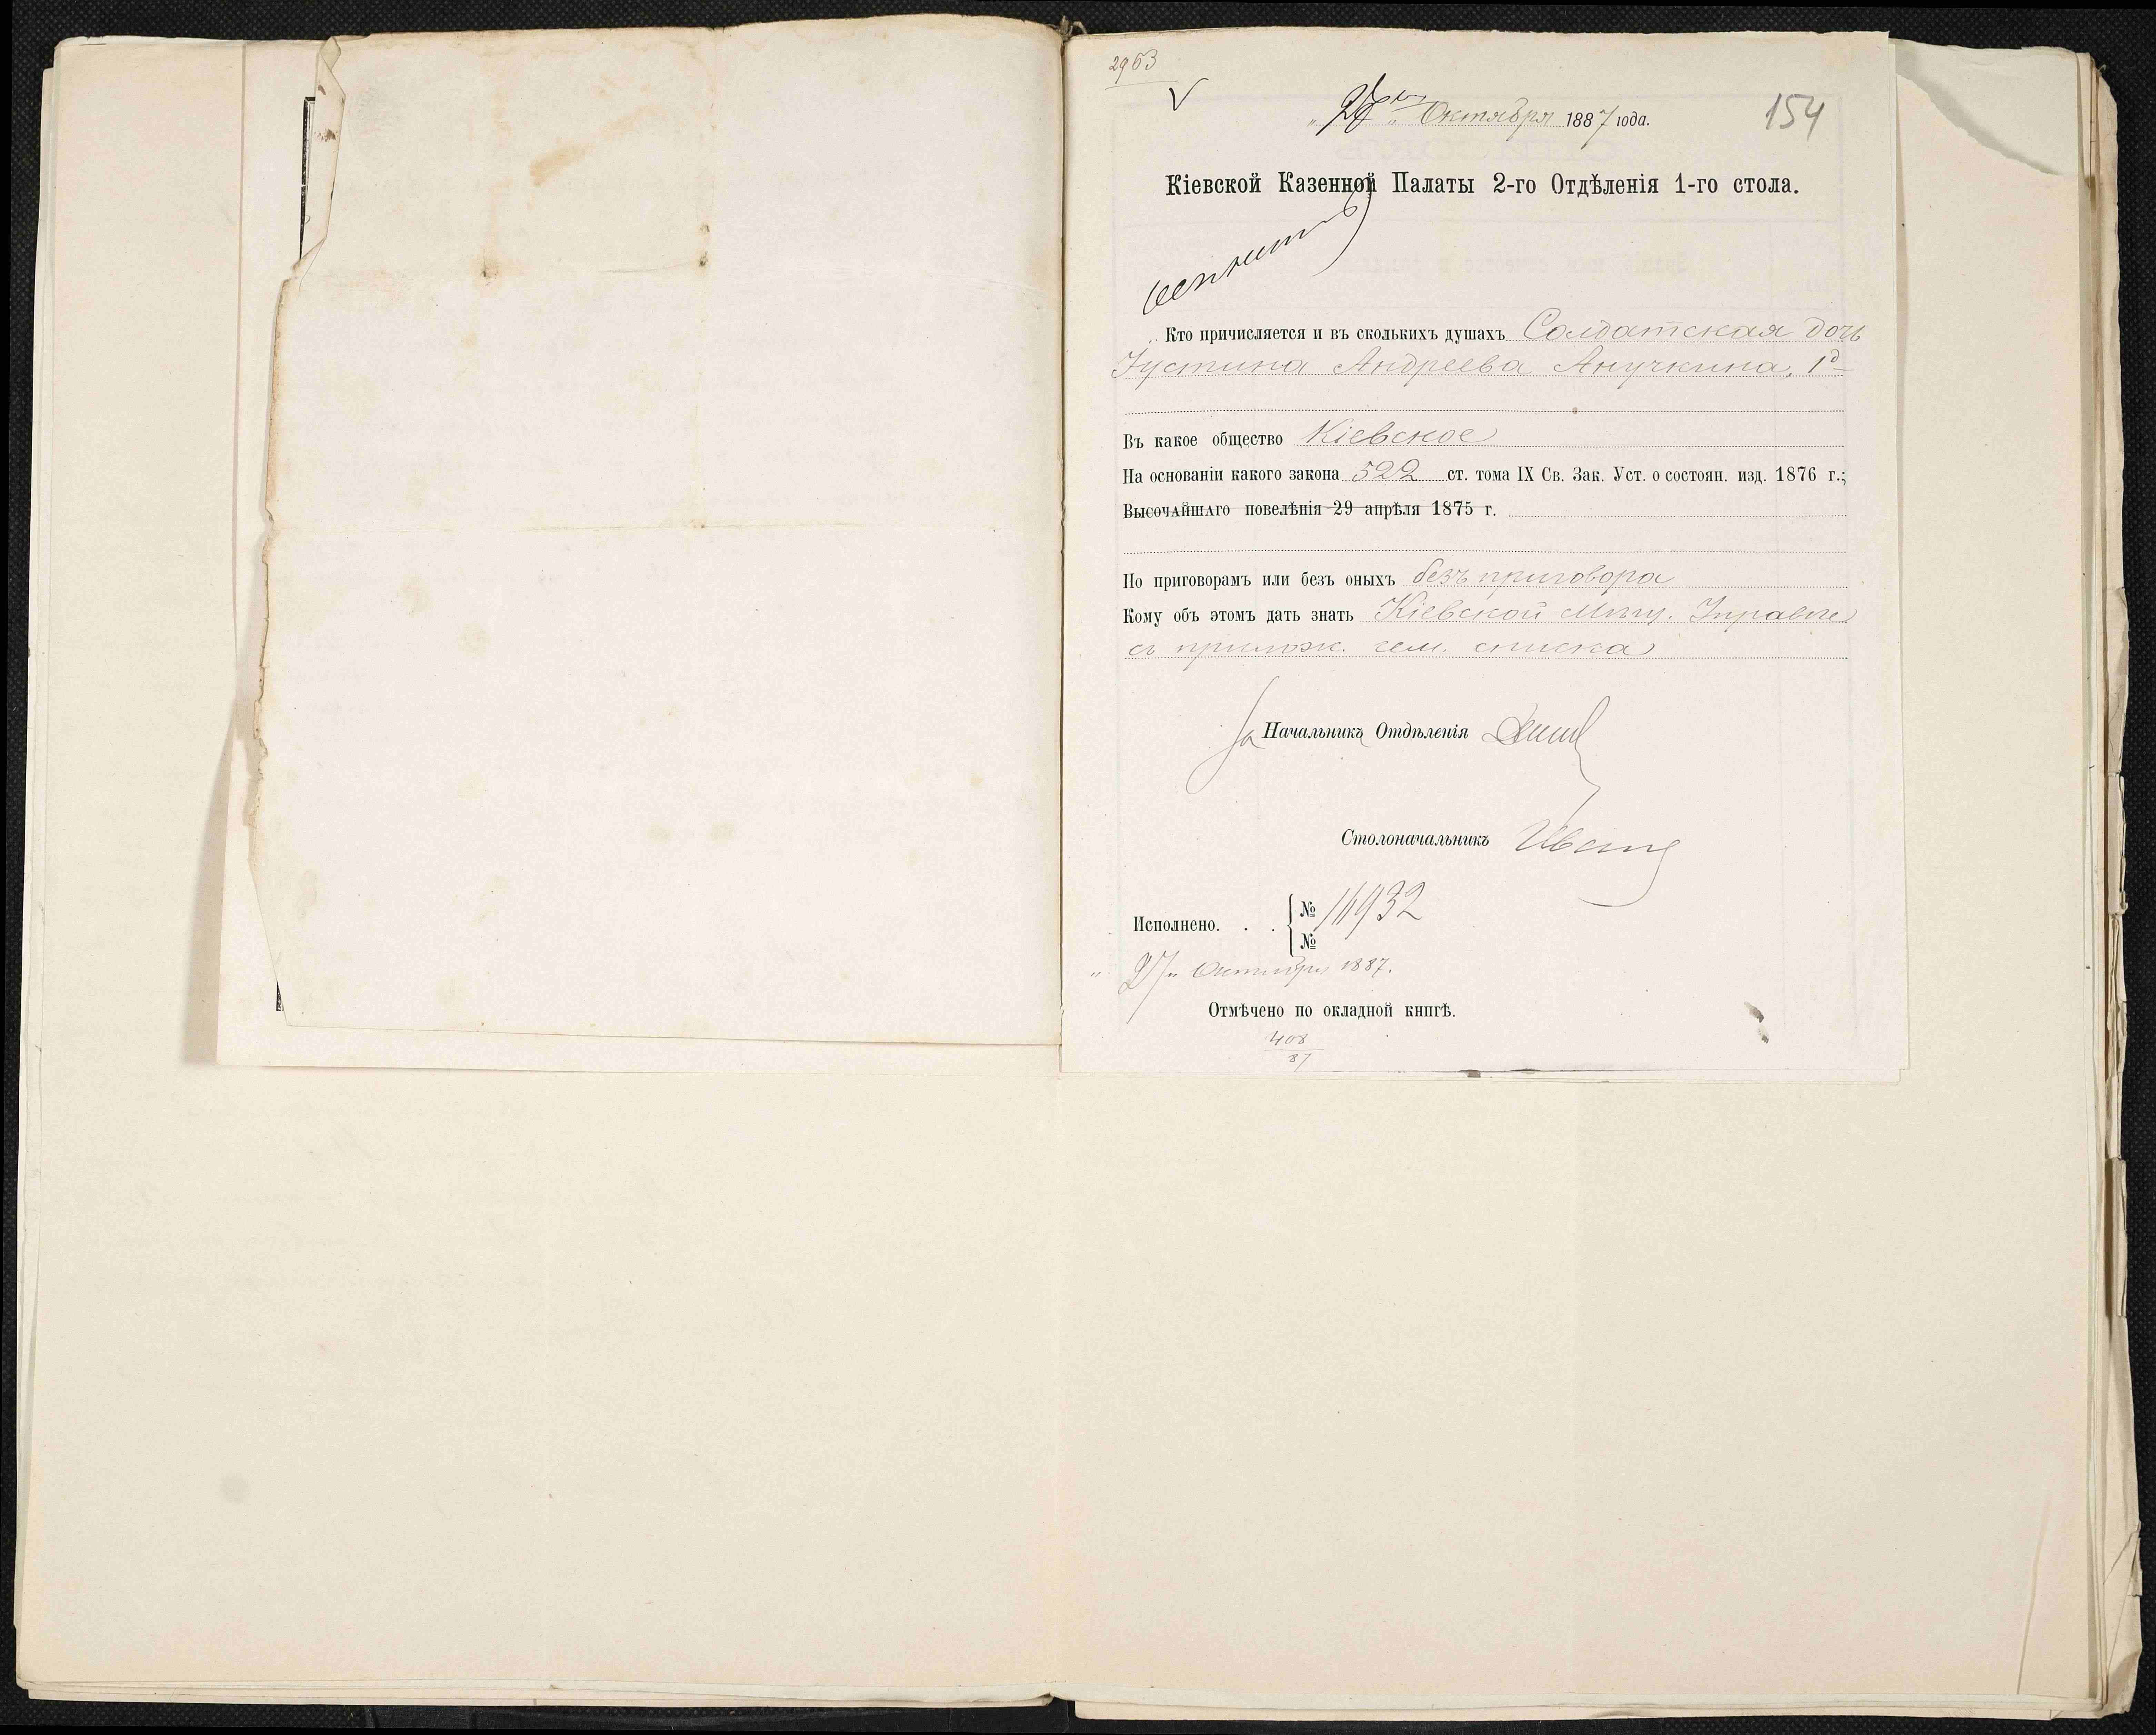 2963
154
Октября 1887 года.
Кіевской Казенной Палаты 2-го Отдѣленія 1-го стола.
Кто причисляется и въ сколькихъ душахъ Солдатская дочь
Іустина Андреева Анучкина, 1 д
Въ какое общество Кіевское
На основаніи какого закона 522 ст. тома IX Св. Зак. Уст. о состоян. изд. 1876 г.;
Высочайшаго повелѣнія 29 апрѣля 1875 г.
По приговорамъ или безъ оныхъ безъ приговора
Кому объ этомъ дать знать Кіевской Мѣщ. Управѣ
съ прилож. сем. списка
За Начальникъ Отдѣленія
Столоначальникъ
Исполнено. . . № 11932
№
„27„ Октября 1887.
Отмѣчено по окладной книгѣ.
408
87